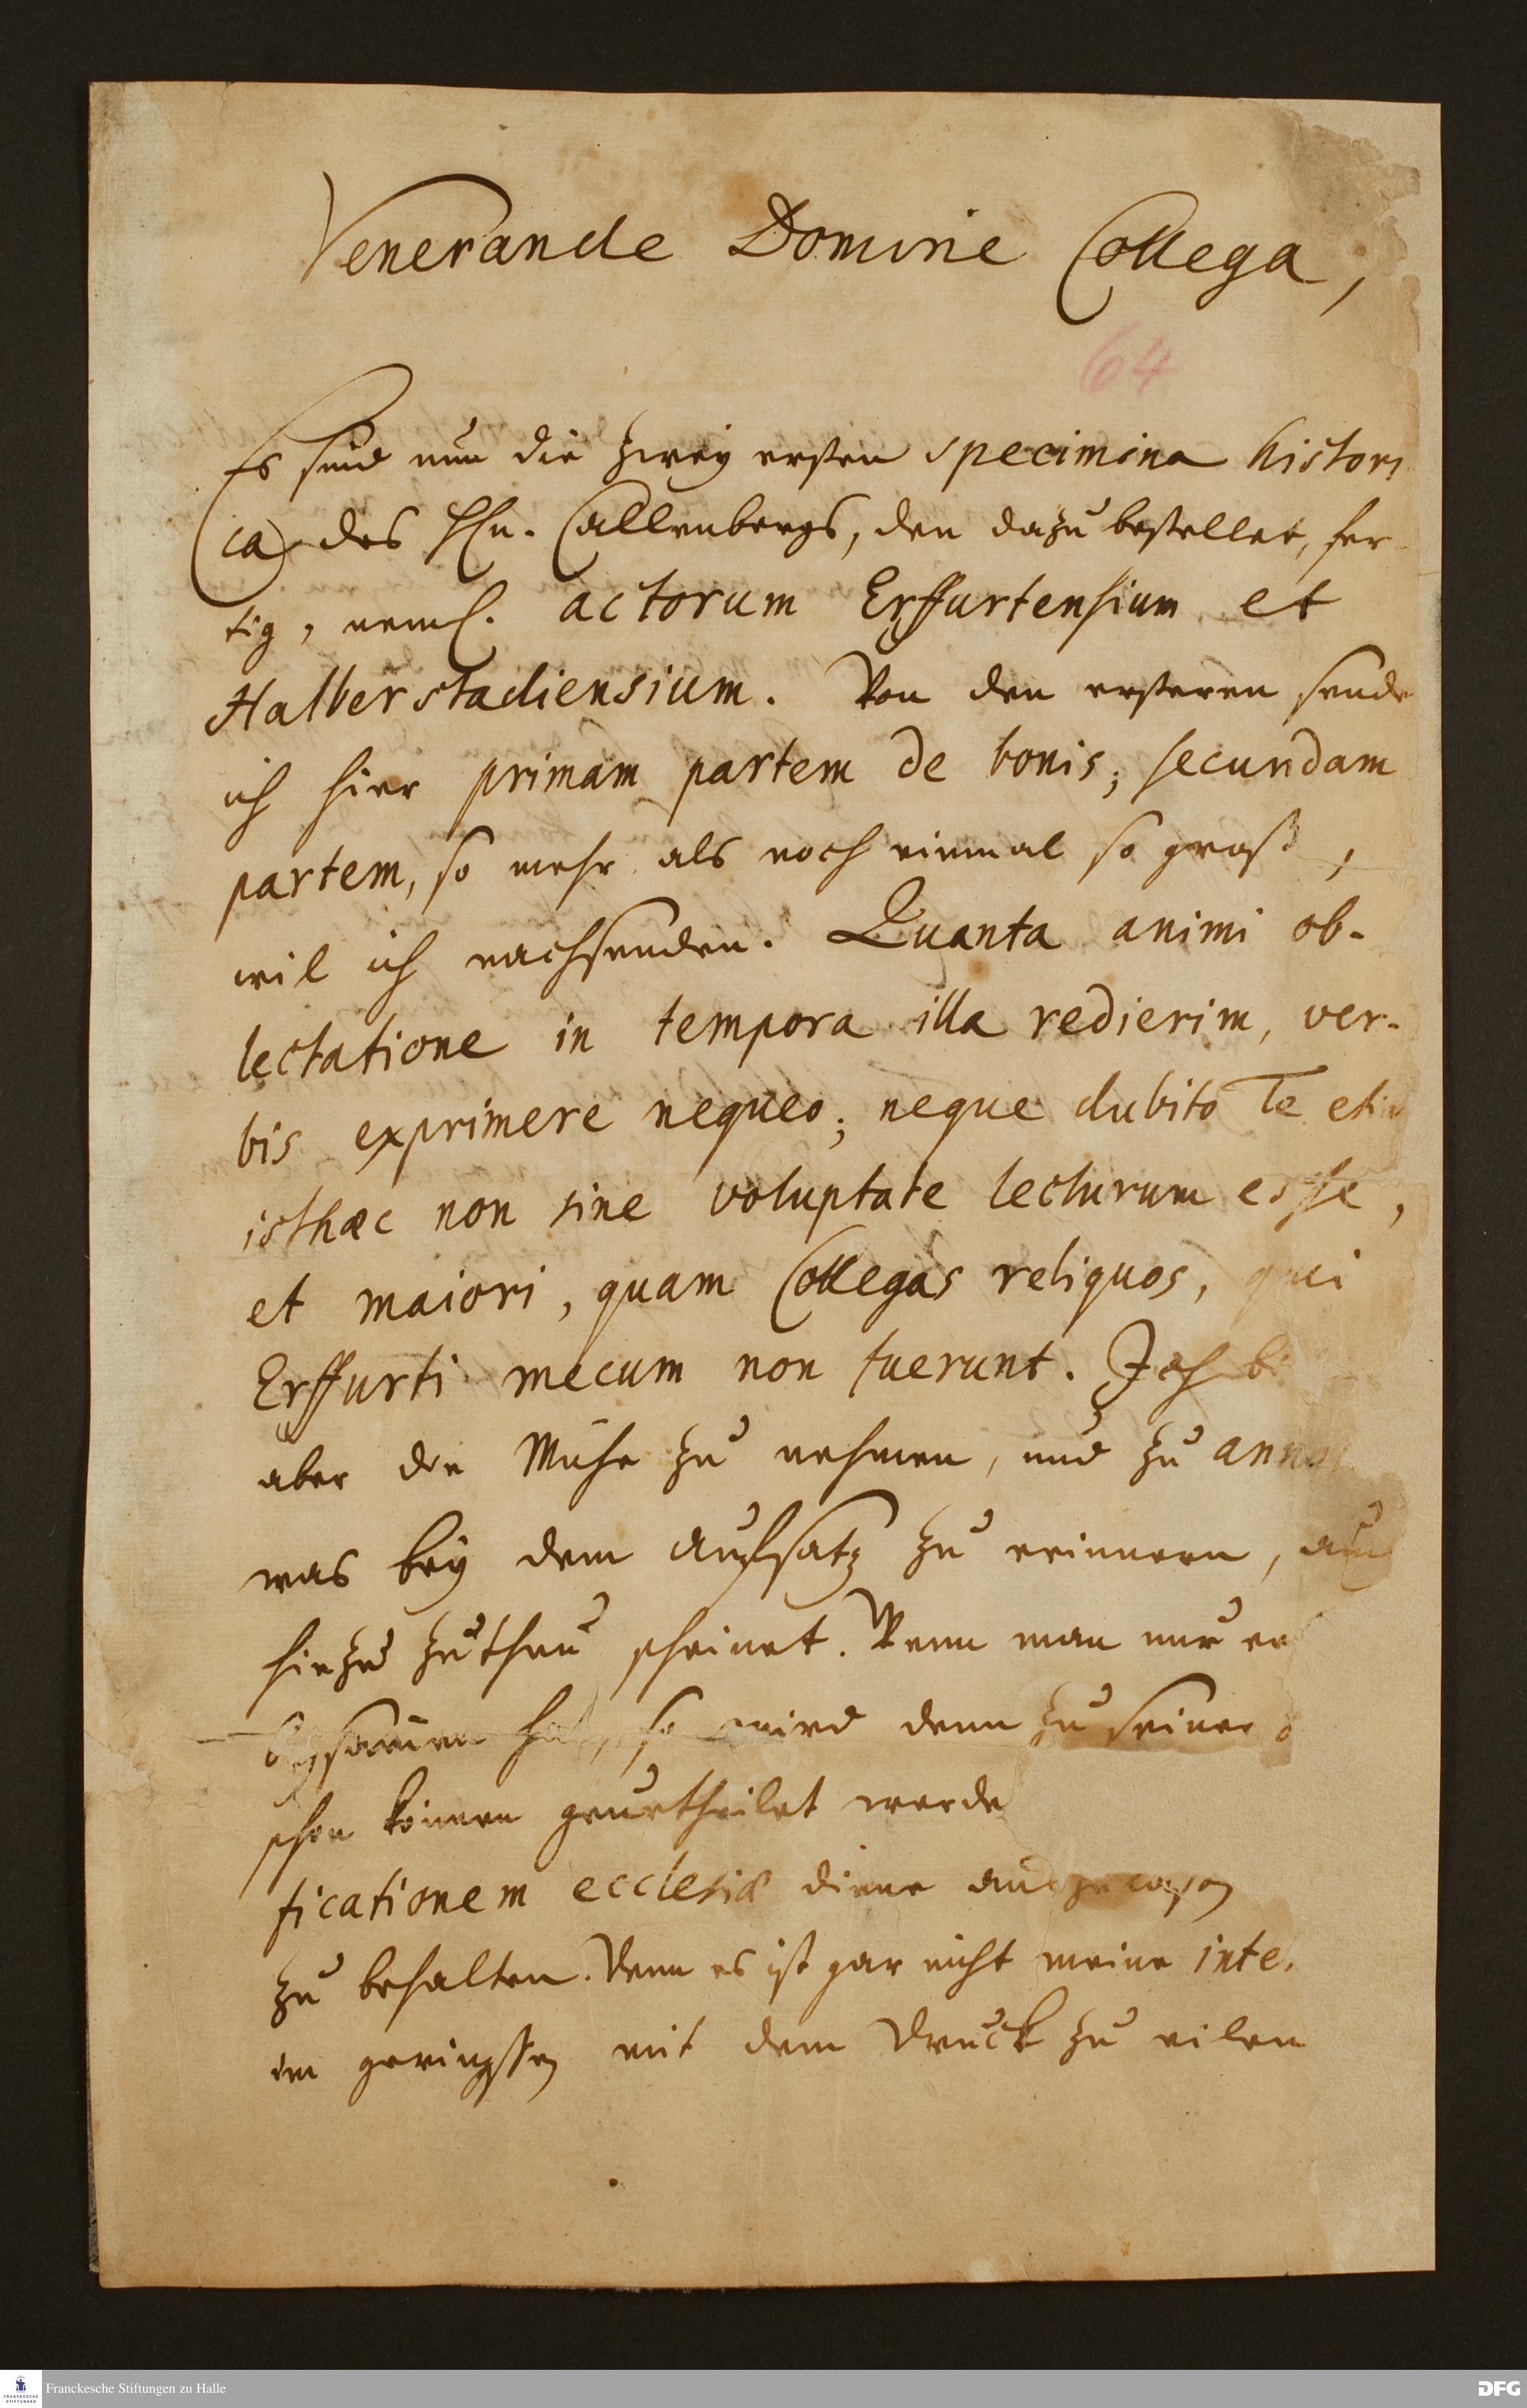 Venerande Domine Collega,
64
Es sind nun die zwey ersten specimina histori
ca des Hn. Callenbergs, den dazu bestellet, fer
tig, neml. actorum Erffurtensium et
Halberstadiensium. Von den ersteren sende
ich hier primam partem de bonis; secundam
partem, so mehr als noch einmal so groß,
wil ich nachsenden. Quanta animi ob-
lectatione in tempora illa redierim, ver-
bis exprimere nequeo; neque dubito Te etia
isthæc non sine voluptate lecturum esse,
et maiori, quam Collegas reliquos, qui
Erffurti mecum non fuerunt. Ich b
aber die Mühe zu nehmen, und zu anno
was bey dem aufsatz zu erinnern,
hinzu zuthun scheinet. Wenn man nur
so wird denn zu seiner
schon können geurtheilet werde
ficationem ecclesiæ diene
zu behalten. Denn es ist gar nicht meine inte
im geringsten mit dem Druck zu eilen
Franckesche Stiftungen zu Halle
DFG